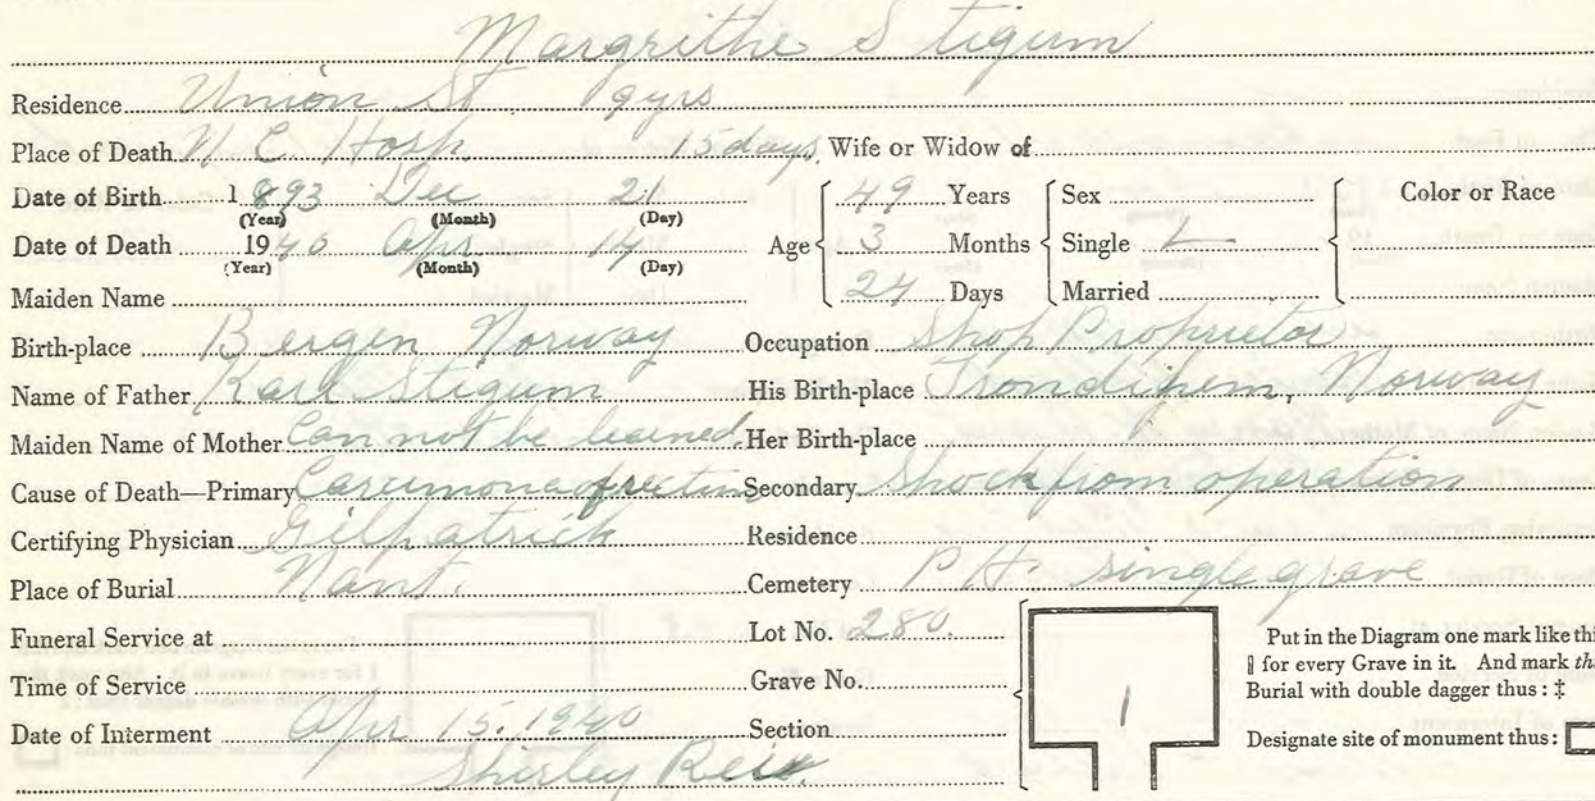 Margrithe Stigum
Residence Union St. 9yrs
Place of Death N. C. Hosp. 15 days Wife or Widow of
Date of Birth 1893 Dec 21 Age 49 Years Sex Color or Race
(Year) (Month) (Day)
Date of Death 1940 Apr. 14 3 Months Single
(Year) (Month) (Day)
Maiden Name 24 Days Married
Birth-place Bergen Norway Occupation Shop Proprietor
Name of Father Karl Stigum His Birth-place Trondhjem, Norway
Maiden Name of Mother Can not be learned. Her Birth-place
Cause of Death—Primary of Secondary Shock from operation
Certifying Physician Gilpatrick Residence
Place of Burial Nant. Cemetery P.H. single grave
Funeral Service at Lot No. 280.
Time of Service Grave No.
Date of Interment Apr 15, 1940 Section
Put in the Diagram one mark like thi
▯ for every Grave in it. And mark th
Burial with double dagger thus: ‡
Designate site of monument thus:
Shirley